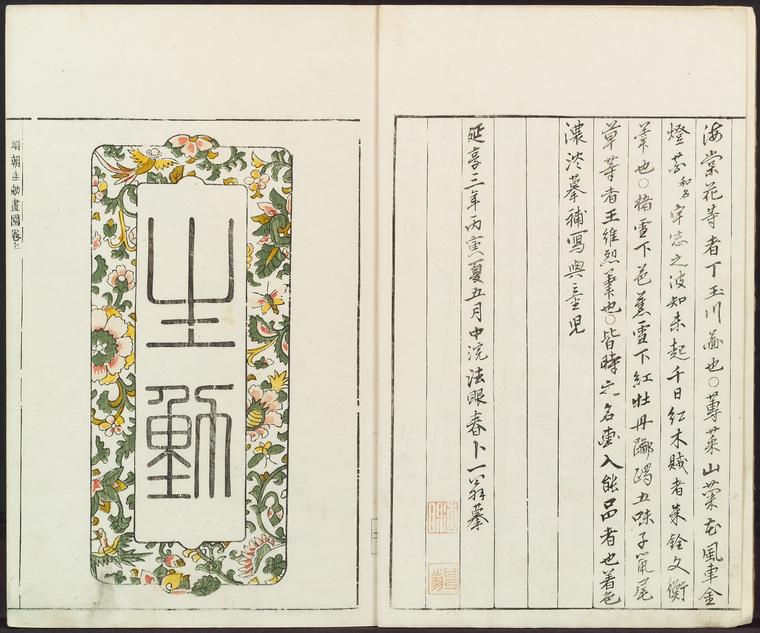 海棠花等者丁玉川畫也○蓴菜山葉花風車金
燈花和名宇志之波知末起千日紅木賊者朱銓文衡
筆也○楮雪下芭蕉雪下紅牡丹躑躅五味子鼠尾
草等者王維烈筆也○皆時之名畫入能品者也着色
濃淡摹補寫與童児
延享三年丙寅夏五月中浣法眼春卜一翁摹
生動
明朝生動畫園卷上